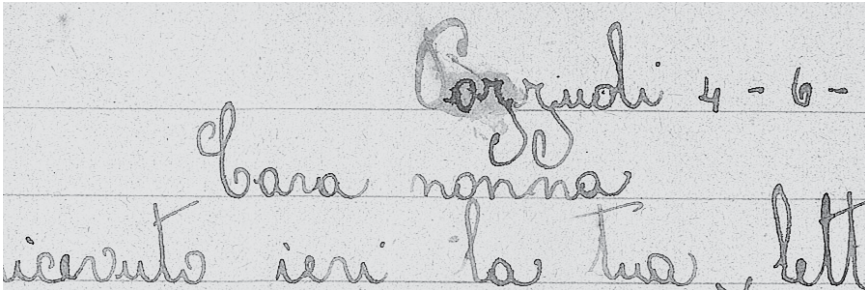 Pozzuoli 4-6-
Cara nonna
icevuto ieri la tua, lett